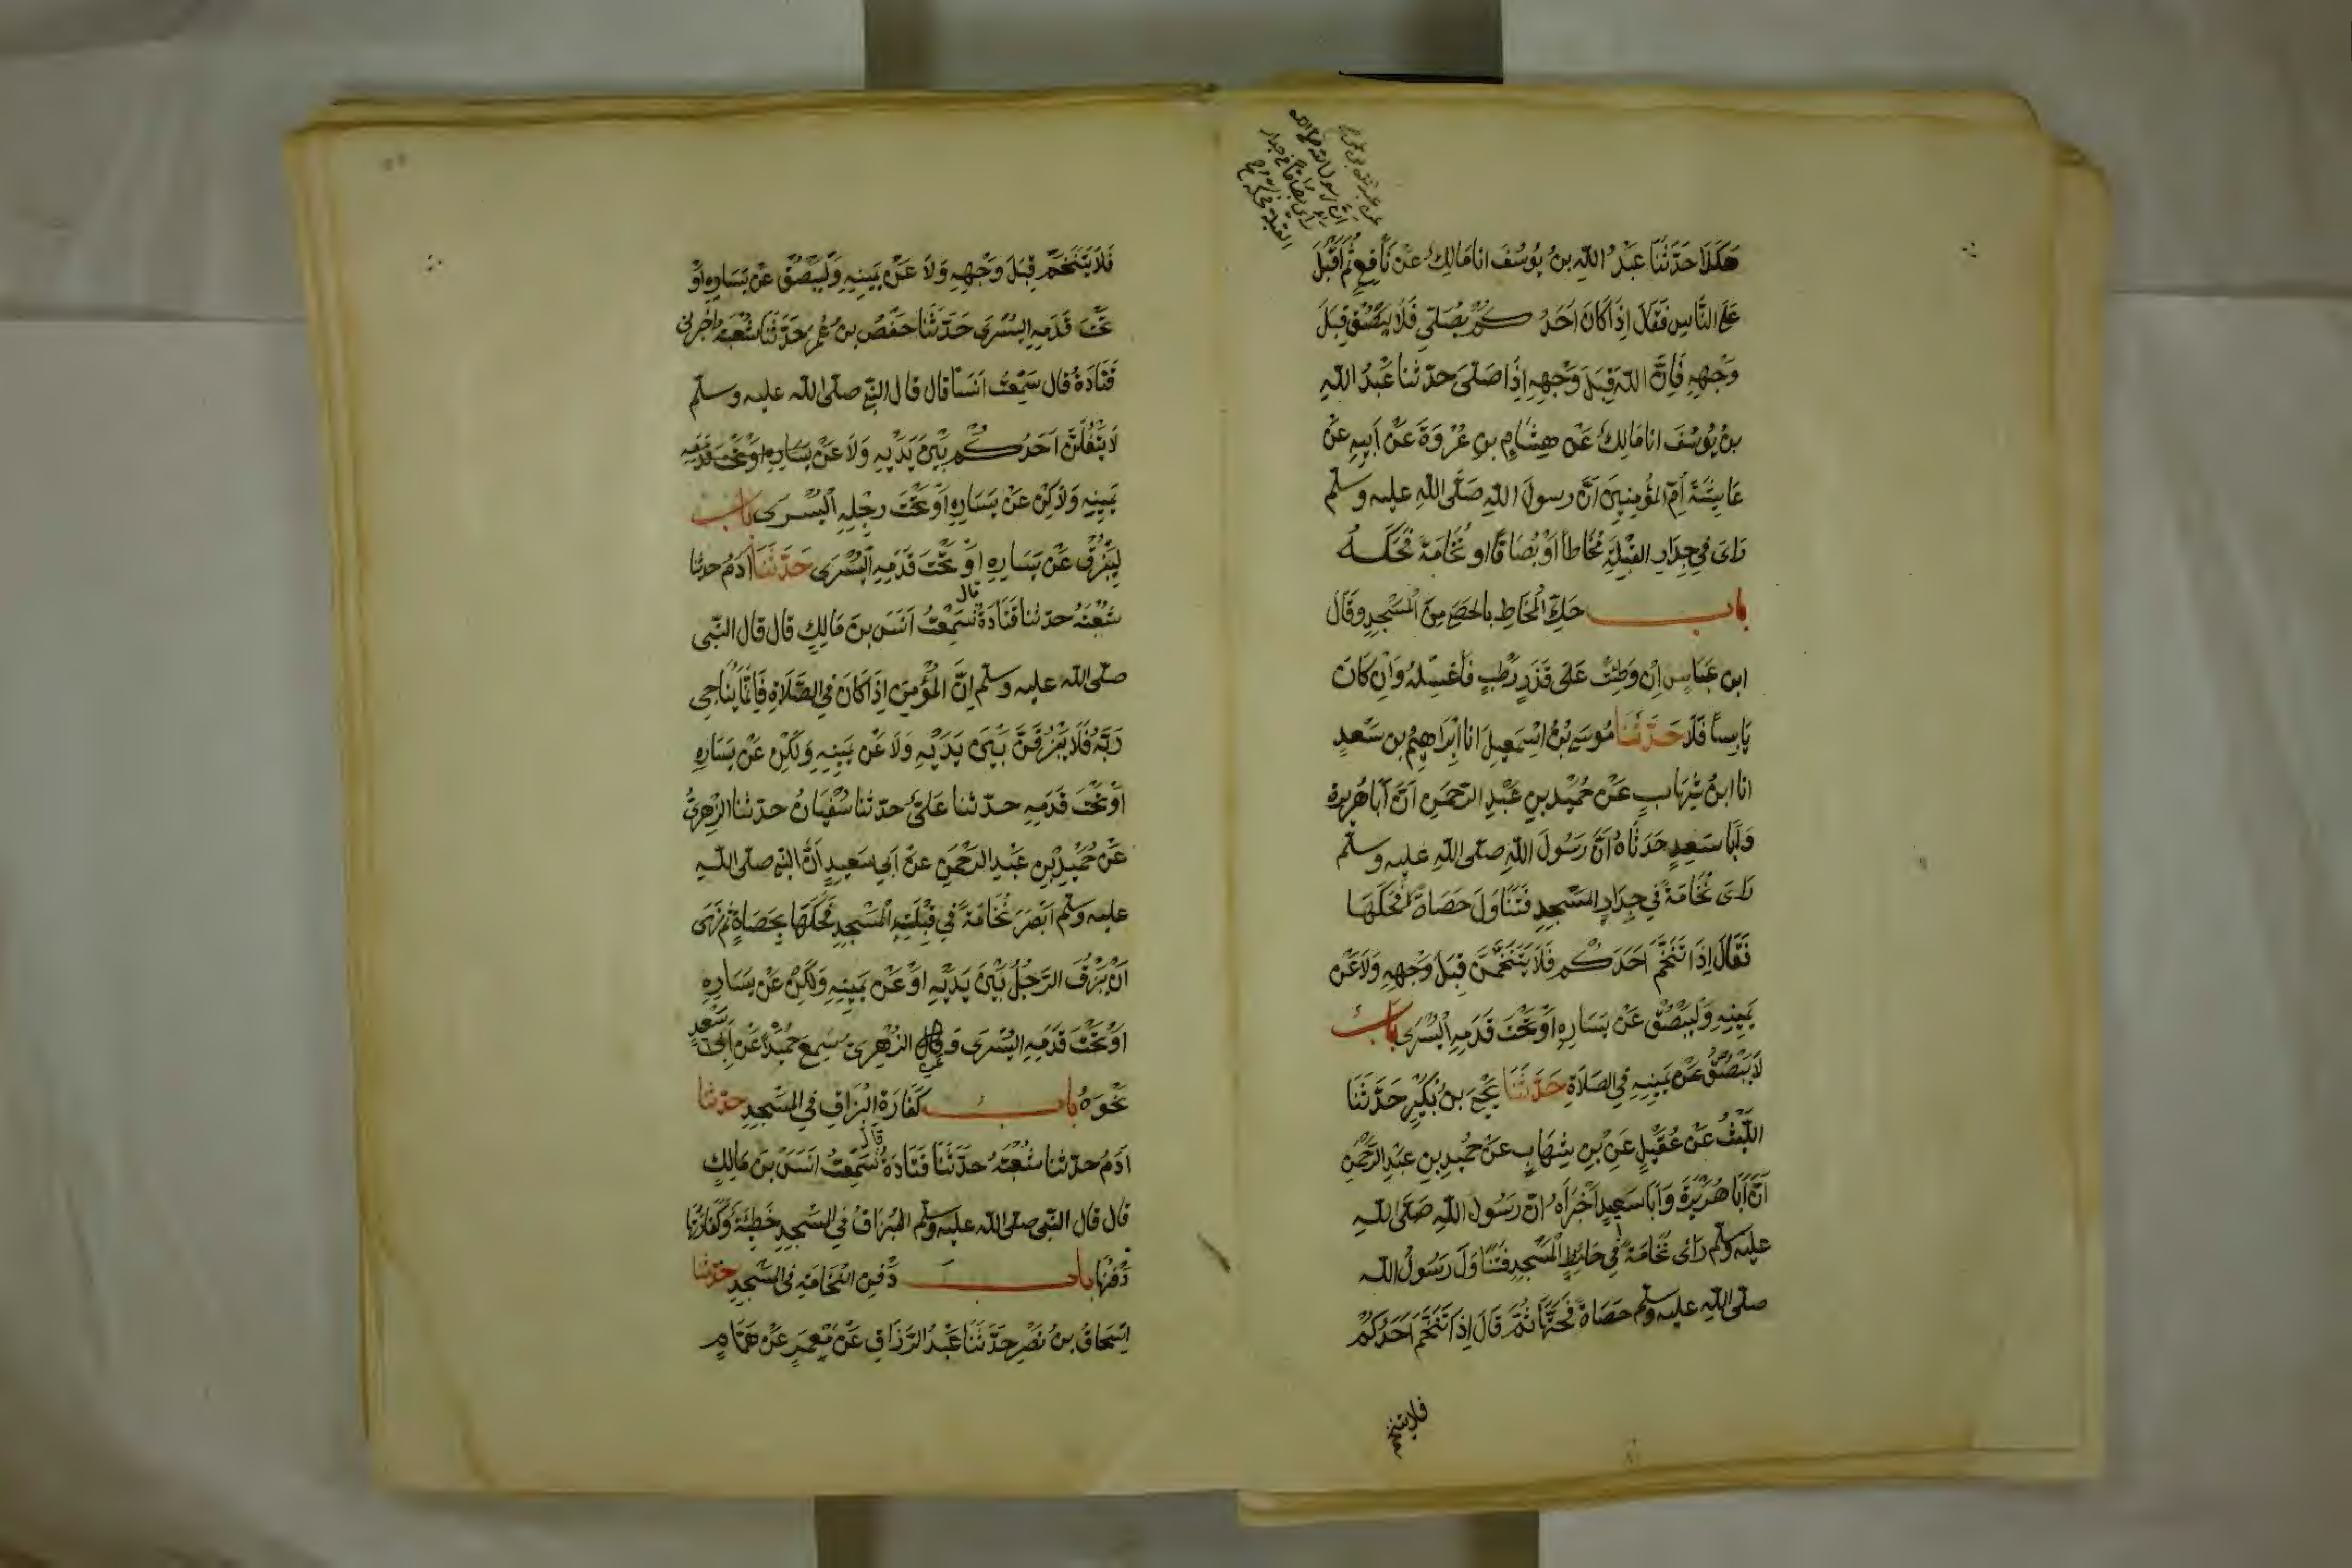 هَكَذَا حَدَّثَنَا عَبْدُ اللّٰهِ بنُ يُوسُفَ انا مَالِكٌ عَنْ نَافِعٍ ثُمَّ اَقْبَلَ
عن عبد الله بن عمر
ان رسول الله صلى الله
راى بصاقا في جدار
القبلة فحكه
عَلَى النَّاسِ فَقَالَ اِذَا كَانَ اَحَدُكُمْ يُصَلِّي فَلَا يَبْصُقْ قِبَلَ
وَجْهِهِ فَاِنَّ اللّٰهَ قِبَلَ وَجْهِهِ اِذَا صَلَّى حَدّثنا عَبْدُ اللّٰهِ
بنُ يُوسُفَ انا مَالِكٌ عَنْ هِشَامِ بنِ عُرْوَةَ عَنْ اَبِيهِ عَنْ
عَايِشَةَ اُمِّ المُؤْمِنِينَ اَنَّ رسولَ اللّٰهِ صَلَّى اللّٰهِ عليه وسلم
رَاىَ فِي جِدَارِ القِبْلَةِ مُخَاطاً اَوْ بُصَاقًا او نُخَامَةً فَحَكَّهُ
باب حَكِّ الْمُخَاطِ بالحَصَى مِنَ الْمَسْجِدِ وقَالَ
ابن عَبَّاسٍ اِنْ وَطِئْتَ عَلَى قَذَرٍ رَطْبٍ فَاغْسِلْهُ وَاِنْ كَانَ
يَابِسًا فَلَا حَدَّثَنَا مُوسَى بْنُ اسْمَعِيلَ انا اِبْرَاهِيمُ بن سَعْدٍ
انا ابنُ شِهَابٍ عَنْ حُمَيْدِ بنِ عَبْدِ الرَّحمَنِ اَنَّ اَبَا هُرَيرة
وَاَبَا سَعِيدٍ حَدَّثَاهُ اَنَّ رَسُولَ اللّٰهِ صلّى اللّٰهِ عليه وسلم
رَاىَ نُخَامَةً فِي جِدَارِ الْمَسْجِدِ فَتَنَاوَلَ حَصَاةً فَحَكَّهَا
فَقَالَ اِذَا تَنَخَّمَ اَحَدُكُم فَلَا يَتَنَخَّمَنَّ قِبَلَ وَجْهِهِ وَلَا عَنْ
يَمِينِهِ وَلْيَبْصُقْ عَنْ يَسَارِهِ اَوْ تَحْتَ قَدَمِهِ الْيُسْرَى بَابٌ
لَا يَبْصُقْ عَنْ يَمِينِهِ فِي الصَّلَاةِ حَدَّثَنَا يَحْيَى بنُ بُكَيْرٍ حَدَّثَنَا
اللَّيْثُ عَنْ عُقَيْلٍ عَنِ بنِ شِهَابٍ عَنْ حُمَيدِ بنِ عَبْدِ الرَّحْمَنِ
اَنَّ اَبَا هُرَيْرَةَ وَاَبَا سَعِيدٍ اَخْبَرَاهُ انّ رَسُولَ اللّٰهِ صَلَّى اللّٰهِ
عليه وسلم رَاى نُخَامَةً فِي حَائِطِ الْمَسْجِدِ فَتَنَاوَلَ رَسُولُ اللّٰه
صلّى اللّٰهِ عليه وسلم حَصَاةً فَحَتَّهَا ثُمَّ قَالَ اِذَا تَنَخَّمَ اَحَدُكُمْ
فلا يتنخم
فَلَا يَتَنَخَّمْ قِبَلَ وَجْهِهِ وَلَا عَنْ يَمِينِهِ وَلْيَبْصُقْ عَنْ يَسَارِهِ اَوْ
تَحْتَ قَدَمِهِ الْيُسْرَى حَدَّثَنَا حَفْصُ بنُ عُمَرَ حَدَّثَنَا شُعْبَةُ اخْبرني
قَتَادَةُ قال سَمِعْتُ اَنَسًا قال قال النّبي صلّى اللّٰه عليه وسلم
لَا يَتْفُلَنَّ اَحَدُكُم بَيْنَ يَدَيْهِ وَلَا عَنْ يَسَارِهِ اوْ تَحْتَ قَدَمِهِ
يَمِينِهِ وَلَاكِنْ عَنْ يَسَارِهِ اَوْ تَحْتَ رِجْلِهِ الْيُسْرَى بَابٌ
لِيَبْزُقْ عَنْ يَسَارِهِ اَوْ تَحْتَ قَدَمِهِ الْيُسْرَى حَدَّثَنَا اٰدَمُ حدثنا
شُعْبَةُ حدّثنا قَتَادَةُ قال سَمِعْتُ اَنَسَ بنَ مَالِكٍ قال قال النّبي
صلّى اللّٰه عليه وسلم اِنَّ الْمُؤْمِنَ اِذَا كَانَ فِي الصَّلَاةِ فَاِنَّمَا يُنَاجِي
رَبَّهُ فَلَا يَبْزُقَنَّ بَيْنَ يَدَيْهِ وَلَا عَنْ يَمِينِهِ وَلَكِنْ عَنْ يَسَارِهِ
اَوْ تَحْتَ قَدَمِهِ حدّثنا عَلِيٌّ حدّثنا سُفْيَانُ حدّثنا الزُّهرِيُّ
عَنْ حُمَيْدِ بْنِ عَبْدِ الرَّحْمَنِ عَنْ اَبِي سَعِيدٍ اَنَّ النّبي صلّى اللّٰهِ
عليه وسلم اَبْصَرَ نُخَامَةً فِي قِبْلَةِ الْمَسْجِدِ فَحَكَّهَا بِحَصَاةٍ ثُمَّ نَهَى
اَنْ يَبْزُقَ الرَّجُلُ بَيْنَ يَدَيْهِ اَوْ عَنْ يَمِينِهِ وَلَكِنْ عَنْ يَسَارِهِ
اَوْ تَحْتَ قَدَمِهِ الْيُسْرَى وَعَنِ الزُّهْرِيّ سَمِعَ حُمَيْدًا عَنْ اَبِي سَعِيدٍ
نَحْوَهُ بابُ كَفَّارَةِ الْبُزَاقِ فِي الْمَسْجِدِ حدّثنا
اٰدَمُ حدّثنا شُعْبَةُ حدّثَنَا قَتَادَةُ قال سَمِعْتُ انَسَ بنَ مَالِكٍ
قال قال النّبي صلّى اللّٰه عليه وسلم الْبُزَاقُ فِي الْمَسْجِدِ خَطِيئَةٌ وَكَفَّارَتُهَا
دَفْنُهَا باب دَفْنِ النُّخَامَةِ فِي الْمَسْجِدِ حدّثنا
اِسْحَاقُ بنُ نَصْرٍ حَدَّثَنَا عَبْدُ الرَّزَّاقِ عَنْ مَعْمَرٍ عَنْ هَمَّامٍ